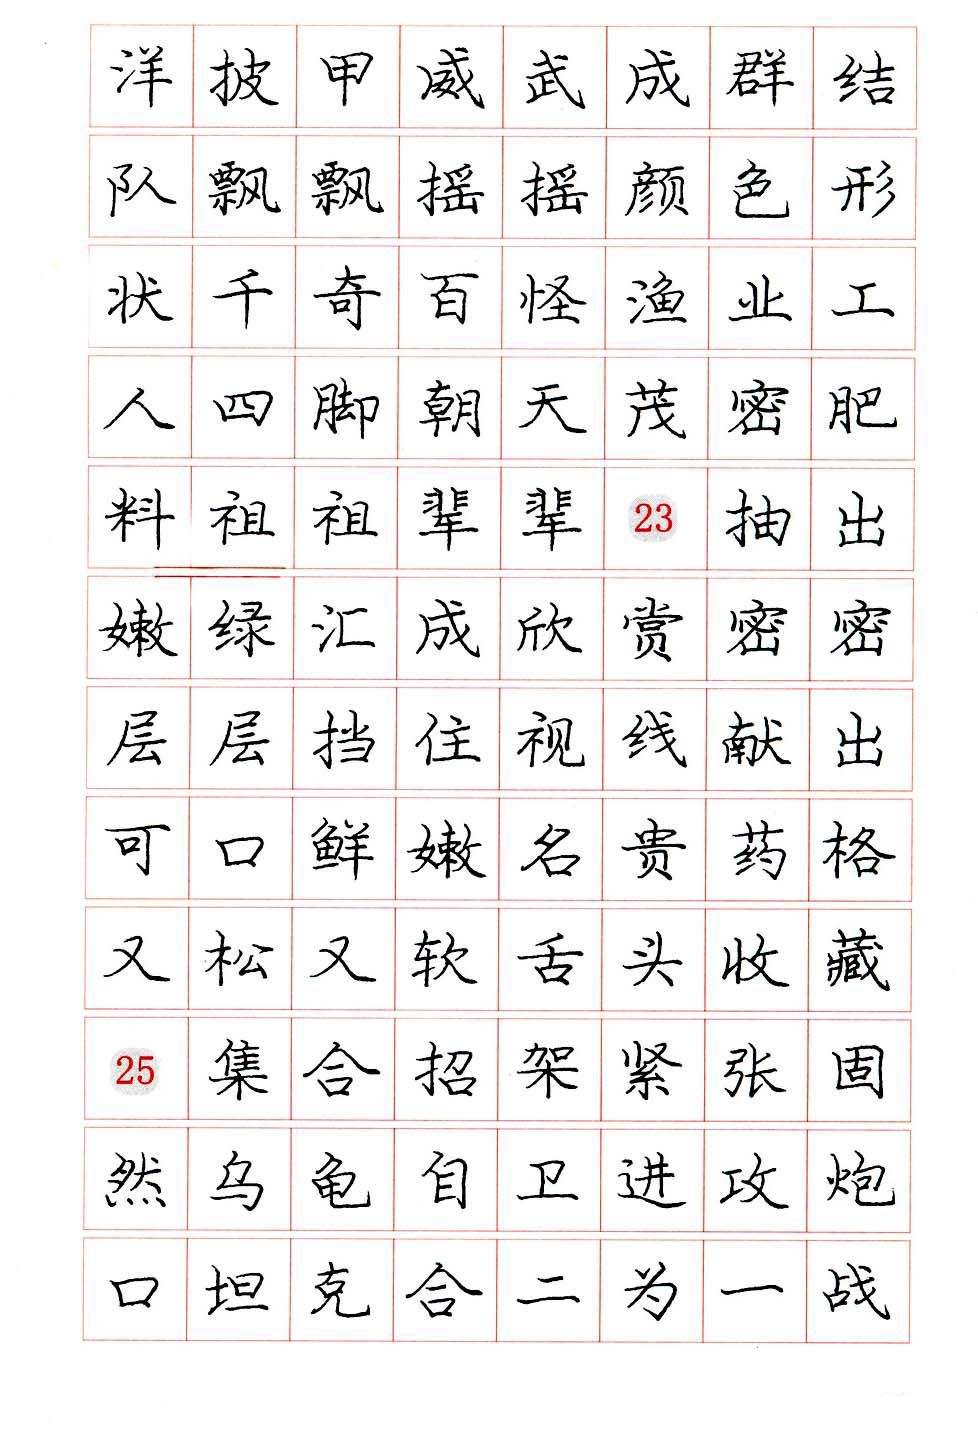 洋披甲威武成群结
队飘飘摇摇颜色形
状千奇百怪渔业工
人四脚朝天茂密肥
料祖祖辈辈23抽出
嫩绿汇成欣赏密密
层层挡住视线献出
可口鲜嫩名贵药格
又松又软舌头收藏
25集合招架紧张固
然乌龟自卫进攻炮
口坦克合二为一战